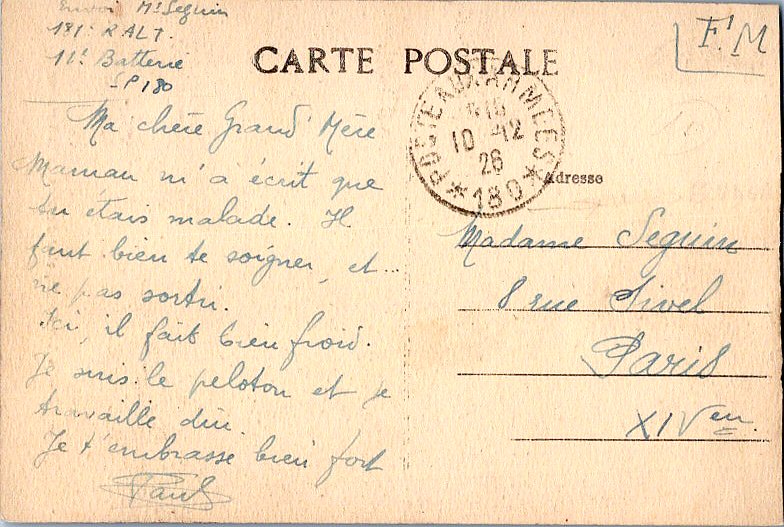 Envoi Mr Seguin
181e RALT.
11e Batterie
SP 180
F.M
CARTE POSTALE
POSTE AUX ARMEES
10 - 12
26
* 180 *
Adresse
Ma chère Grand' Mère
Maman m'a écrit que
tu étais malade. Il
faut bien te soigner, et...
ne pas sortir.
Ici, il fait bien froid.
Je suis le peloton et je
travaille dur.
Je t'embrasse bien fort
Paul
Madame Seguin
8 rue Sivel
Paris
XIVem